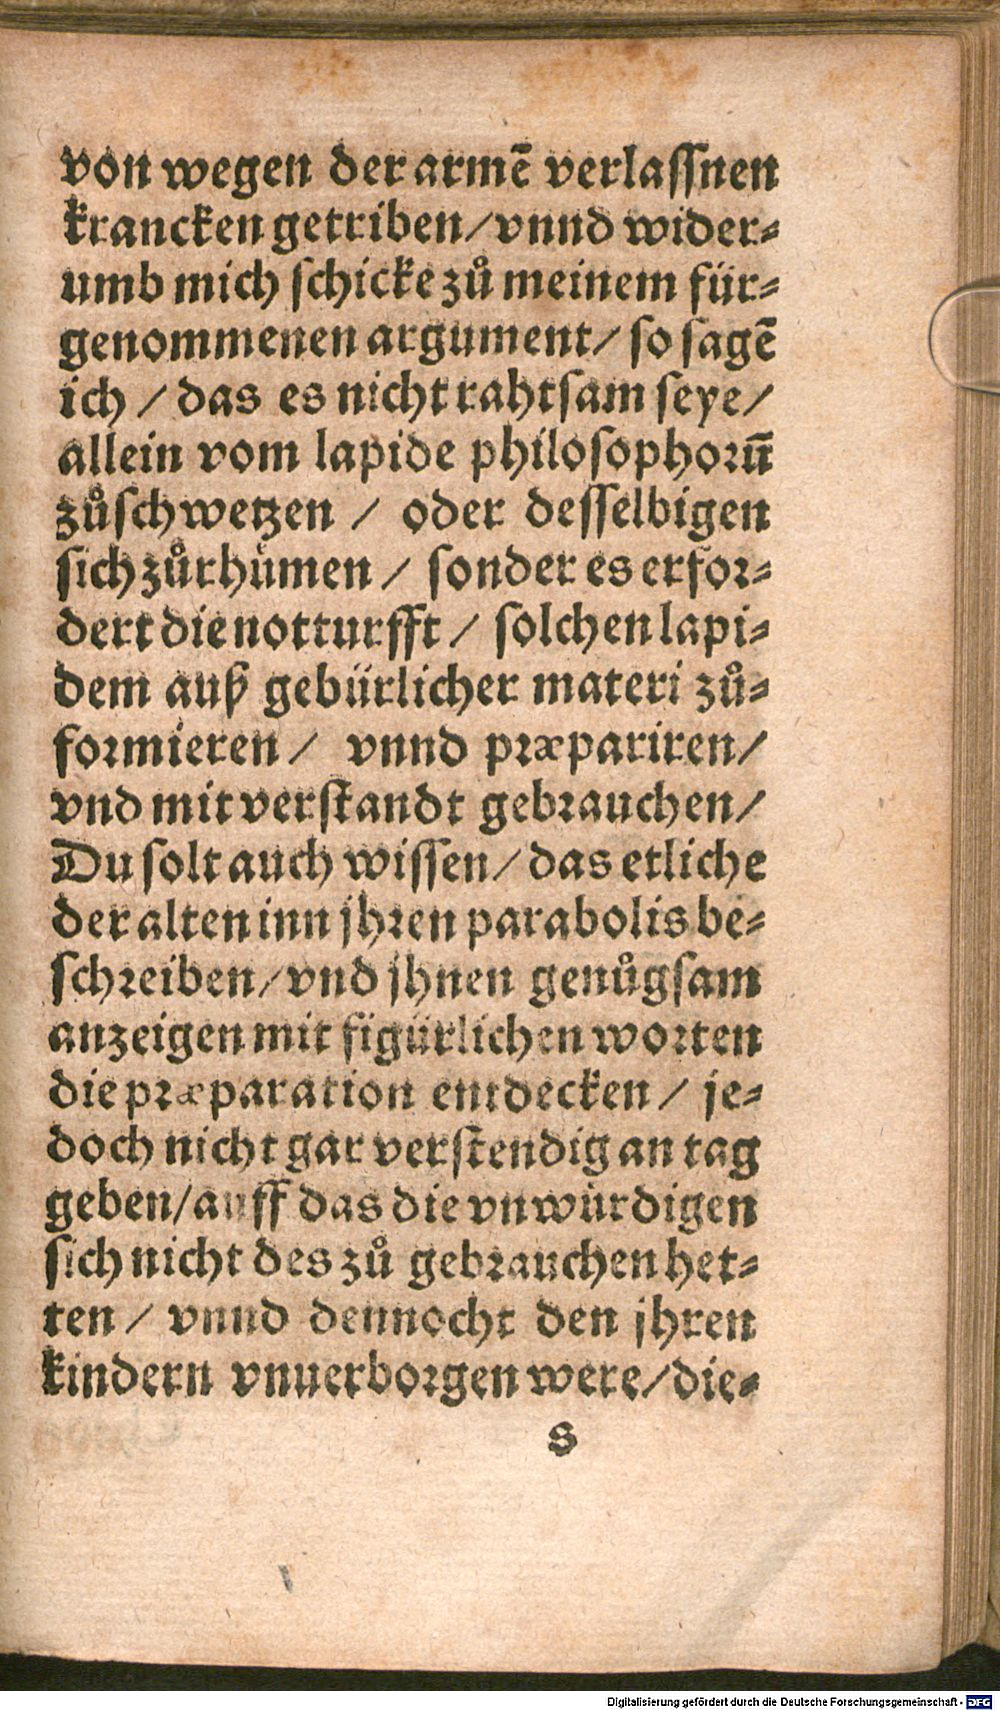 von wegen der armē verlassnen
krancken getriben/vnnd wider⸗
umb mich schicke zů meinem für⸗
genommenen argument/ so sagē
ich / das es nicht rahtsam seye/
allein vom lapide philosophorū
zůschwetzen / oder desselbigen
sich zůrhůmen / sonder es erfor⸗
dert die notturfft / solchen lapi⸗
dem auß gebürlicher materi zů⸗
formieren / vnnd præpariren/
vnd mit verstandt gebrauchen/
Du solt auch wissen/das etliche
der alten inn jhren parabolis be⸗
schreiben/vnd jhnen genůgsam
anzeigen mit figürlichen worten
die præparation entdecken / je⸗
doch nicht gar verstendig an tag
geben/auff das die vnwürdigen
sich nicht des zů gebrauchen het⸗
ten / vnnd dennocht den jhren
kindern vnuerborgen were/die⸗
s
Digitalisierung gefördert durch die Deutsche Forschungsgemeinschaft - DFG